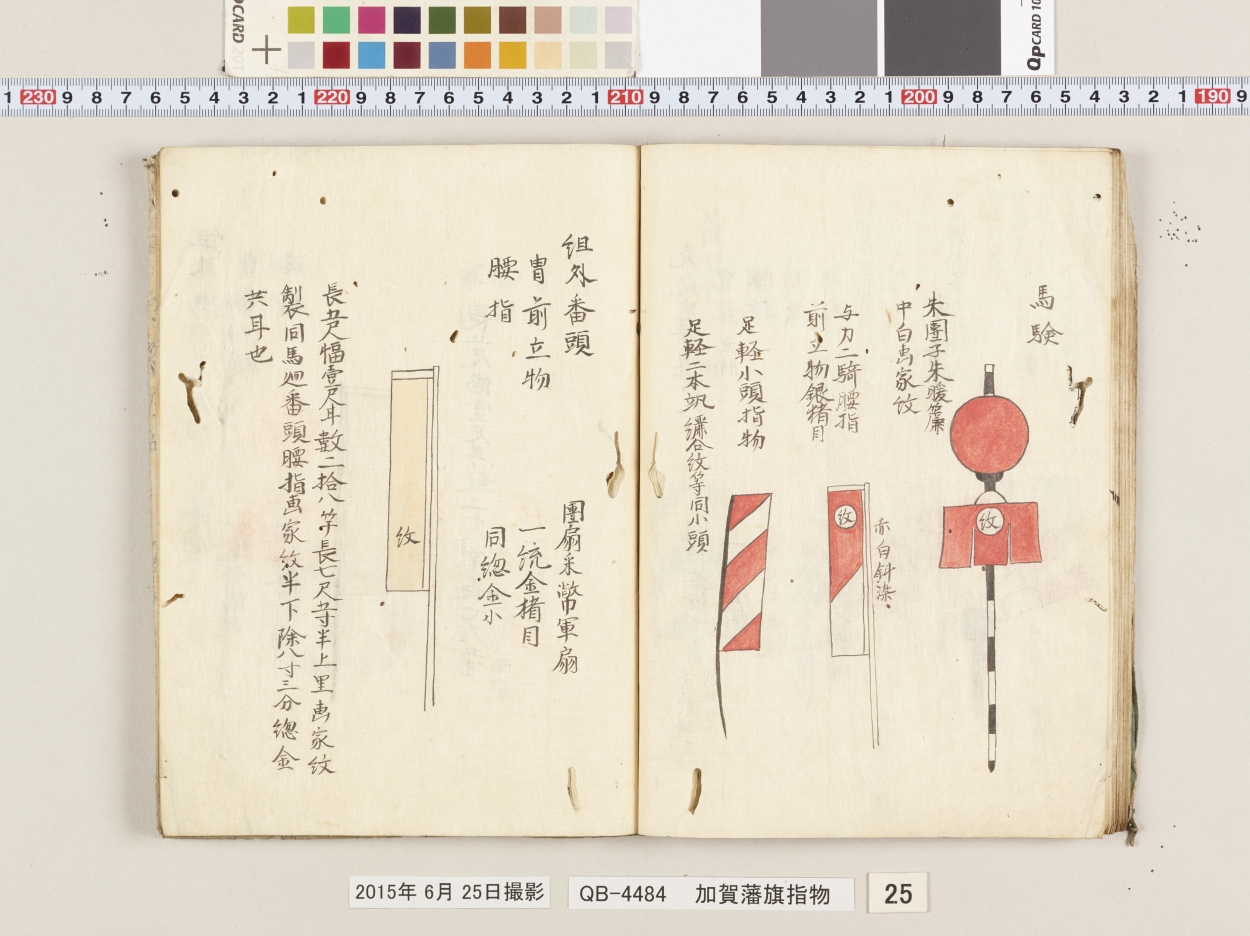 QPCARD 201
QPCARD 10
1 230 9 8 7 6 5 4 3 2 1 220 9 8 7 6 5 4 3 2 1 210 9 8 7 6 5 4 3 2 1 200 9 8 7 6 5 4 3 2 1 190 9
馬験
朱團子朱暖簾
中白畫家紋
紋
与力二騎腰指
前立物銀猪目
紋
赤白斜染
足軽小頭指物
足軽二本
紋等同小頭
組外番頭
團扇采幣軍扇
冑前立物
一統金猪目
腰指
同總金小
紋
長五尺幅壹尺耳數二拾八竿長七尺五寸半上里畫家紋
製同馬廻番頭腰指画家紋半下除八寸三分總金
共耳也
2015年 6月 25日撮影
QB-4484 加賀藩旗指物
25